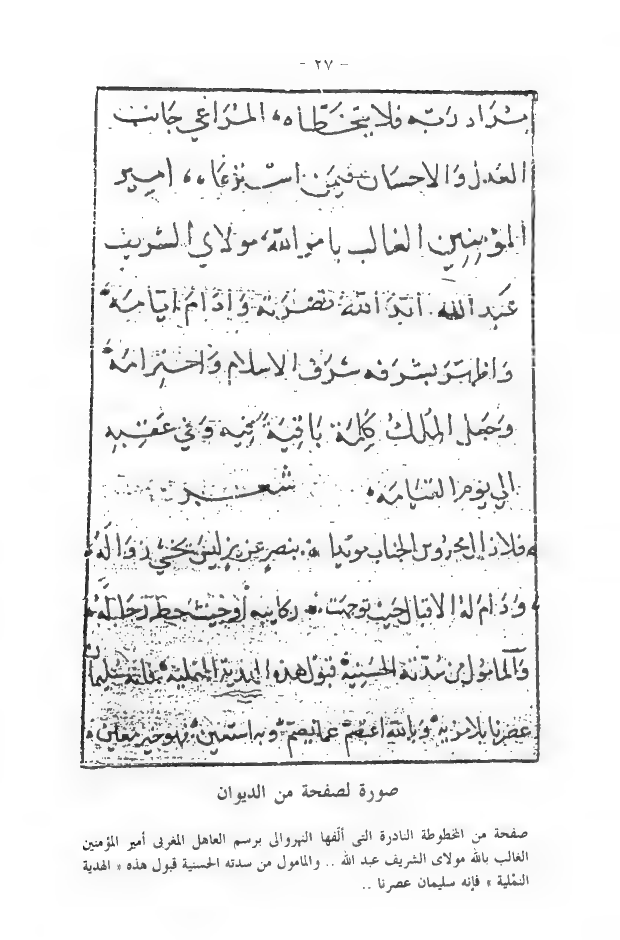 - ٢٧ -
مراد ربه فلا يتخطاه، المراعي جانب
العدل والاحسان فيمن استرعاه، امير
المؤمنين الغالب بامر الله، مولاي الشريف
عبد الله ايد الله نصره وادام ايامه
واظهر بشرفه شرف الاسلام واحترامه
وجعل الملك كلمة باقية فيه وفي عقبه
الي يوم القيامه،
شعر
فلا زال محروس الجناب مويدا بنصر عزيز ليس يخشي زواله
ودام له الاقبال حيث توجهت ركابيه او حيث حط رحاله
والمامول من سدته الحسنية قبول هذه الهدية النملية فانه سليمان
عصرنا بلا مرية وبالله اعتصم عما يصم وبه استعين فهو خير معين
صورة لصفحة من الديوان
صفحة من المخطوطة النادرة التى ألّفها النهروالى برسم العاهل المغربى أمير المؤمنين
الغالب بالله مولاى الشريف عبد الله .. والمامول من سدته الحسنية قبول هذه « الهدية
النمْلية » فإنه سليمان عصرنا ..